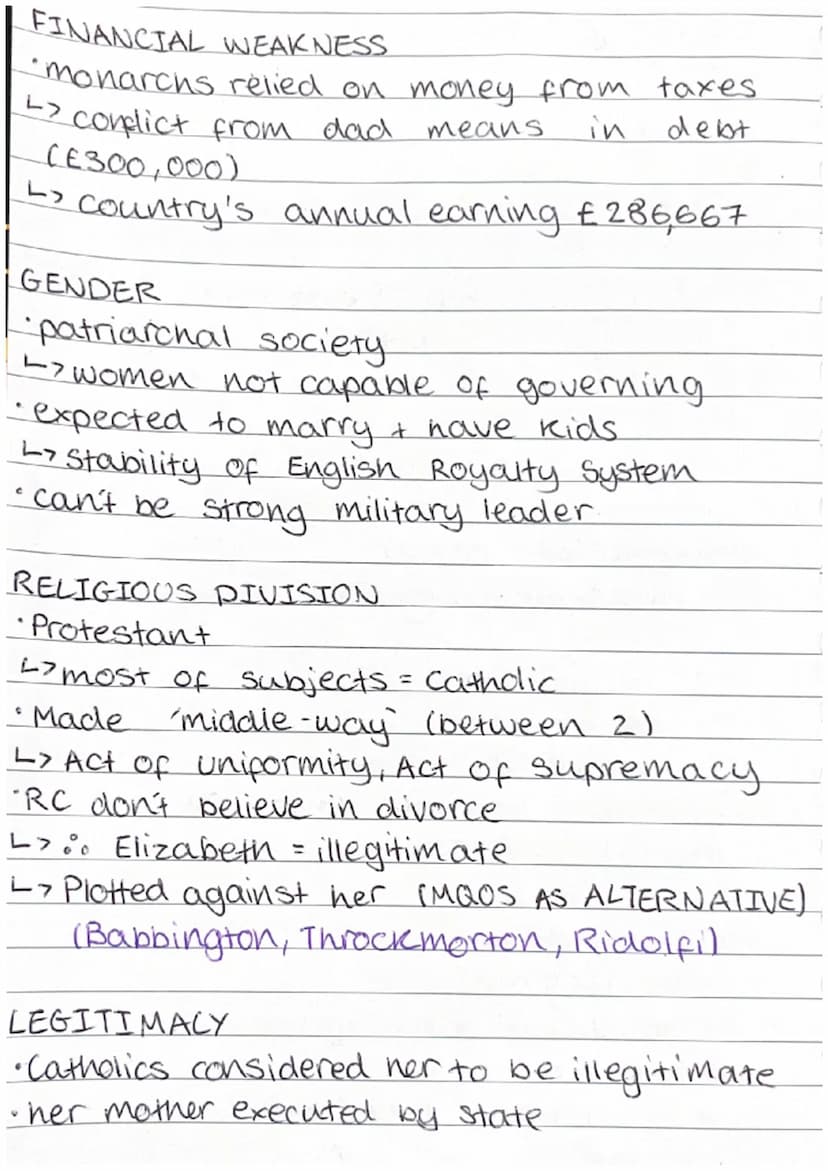 FINANCIAL WEAKNESS
·monarchs relied on money from taxes
↳ conflict from dad means in debt
(£300,000)
↳ country's annual earning £286,667
GENDER
·patriarchal society
↳ women not capable of governing
·expected to marry + have kids
↳ Stability of English Royalty System
·can't be strong military leader
RELIGIOUS DIVISION
·Protestant
↳ most of subjects = Catholic
·Made 'middle-way' (between 2)
↳ Act of uniformity, Act of supremacy
·RC don't believe in divorce
↳ ∴ Elizabeth = illegitimate
↳ Plotted against her (MQOS AS ALTERNATIVE)
(Babbington, Throckmorton, Ridolfi)
LEGITIMACY
·Catholics considered her to be illegitimate
·her mother executed by state